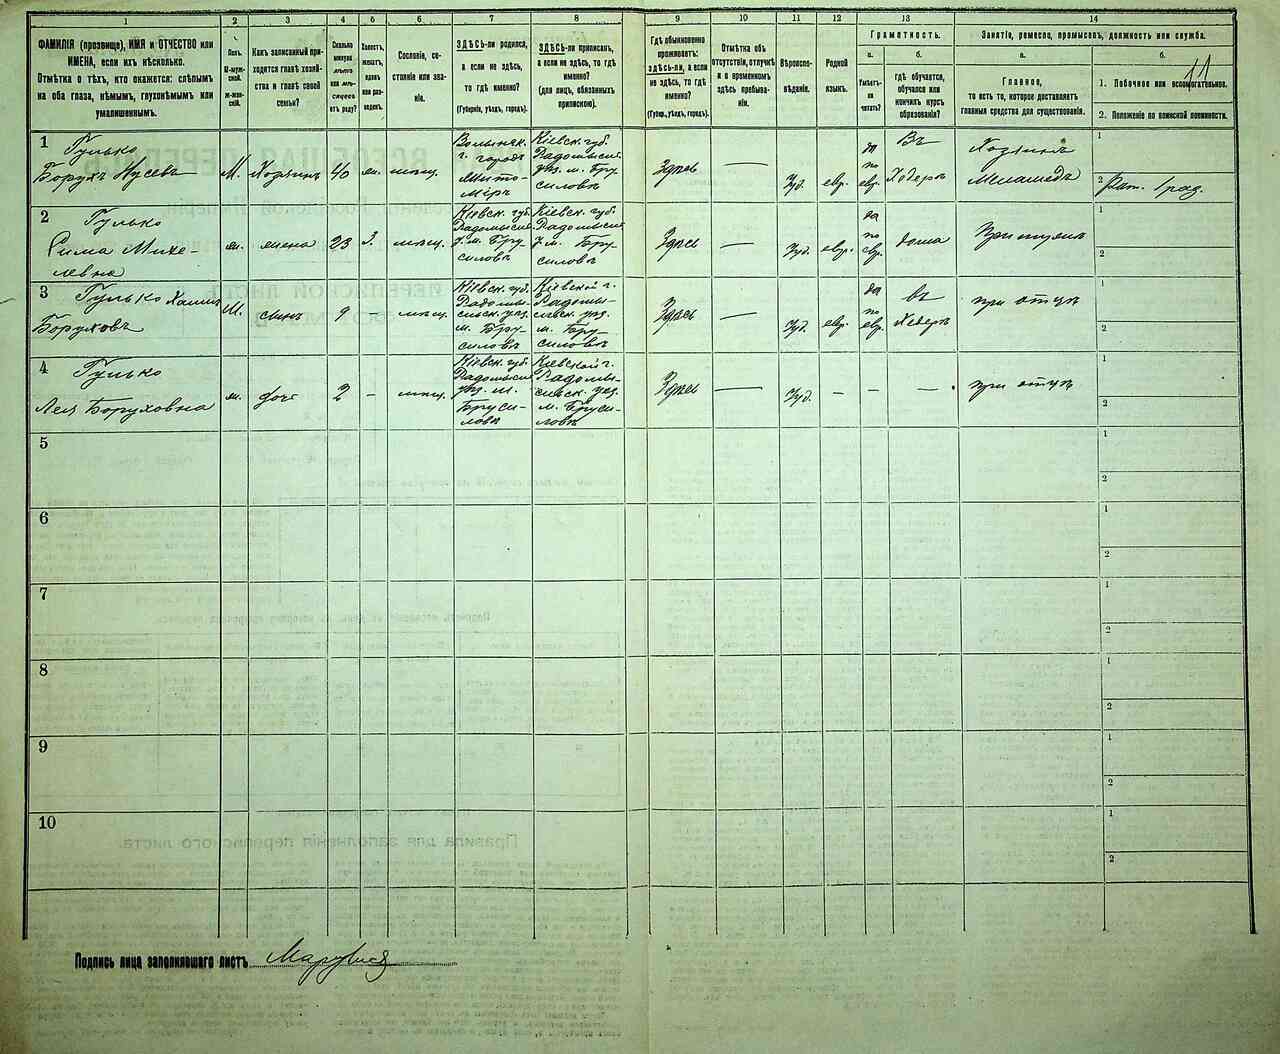 1 2 3 4 5 6 7 8 9 10 11 12 13 14
11
ФАМИЛІЯ (прозвище), ИМЯ и ОТЧЕСТВО или
ИМЕНА, если ихъ нѣсколько.
Отмѣтка о тѣхъ, кто окажется: слѣпымъ
на оба глаза, нѣмымъ, глухонѣмымъ или
умалишеннымъ.
Полъ.
М-муж-
ской.
ж-жен-
скій.
Какъ записанный при-
ходится главѣ хозяй-
ства и главѣ своей
семьи?
Сколько
минуло
лѣтъ
или мѣ-
сяцевъ
отъ роду?
Холостъ,
женатъ,
вдовъ
или раз-
веденъ.
Сословіе, со-
стояніе или зва-
ніе.
ЗДѢСЬ-ли родился,
а если не здѣсь,
то гдѣ именно?
(Губернія, уѣздъ, городъ).
ЗДѢСЬ-ли приписанъ,
а если не здѣсь, то гдѣ
именно?
(для лицъ, обязанныхъ
припискою).
Гдѣ обыкновенно
проживаетъ:
здѣсь-ли, а если
не здѣсь, то гдѣ
именно?
(Губерн., уѣздъ, городъ).
Отмѣтка объ
отсутствіи, отлучкѣ
и о временномъ
здѣсь пребыва-
ніи.
Вѣроиспо-
вѣданіе.
Родной
языкъ.
Грамотность.
а. б.
Умѣетъ-
ли
читать?
гдѣ обучается,
обучался или
кончилъ курсъ
образованія?
Занятіе, ремесло, промыселъ, должность или служба.
а. б.
Главное,
то есть то, которое доставляетъ
главныя средства для существованія.
1. Побочное или вспомогательное.
2. Положеніе по воинской повинности.
1
Гулько
Борухъ Нусевъ
М. Хозяинъ 40 ж. мѣщ.
Волынск.
г. городъ
Жито-
міръ
Кіевск. губ.
Радомысл.
уѣз. м. Бру
силовъ
Здѣсь — Іуд. евр.
да
по
евр.
Въ
Хедерѣ
Хозяинъ
Меламедъ
1
2 Рат. 1 раз.
2
Гулько
Сима Михе-
левна
ж. жена 23 з. мѣщ.
Кіевск. губ.
Радомысл.
у. м. Бру
силовъ
Кіевск. губ.
Радомысл.
у. м. Бру-
силовъ
Здѣсь — Іуд. евр.
да
по
евр.
дома
При мужѣ
1
2
3
Гулько Хаимъ
Боруховъ
М. сынъ 9 – мѣщ.
Кіевск. губ.
Радомы-
сльск. уѣз.
м. Бру-
силовъ
Кіевской г.
Радомы-
сльск. уѣз.
м. Бру-
силовъ
Здѣсь — Іуд. евр.
да
по
евр.
въ
Хедерѣ
при отцѣ
1
2
4
Гулько
Лея Боруховна
ж. дочь 2 – мѣщ.
Кіевск. губ.
Радомысл.
уѣз. м.
Бруси-
ловъ
Кіевской г.
Радомы-
сльск. уѣз.
м. Бруси-
ловъ
Здѣсь — Іуд. – – –
при отцѣ
1
2
5
1
2
6
1
2
7
1
2
8
1
2
9
1
2
10
1
2
Подпись лица заполнявшаго листъ